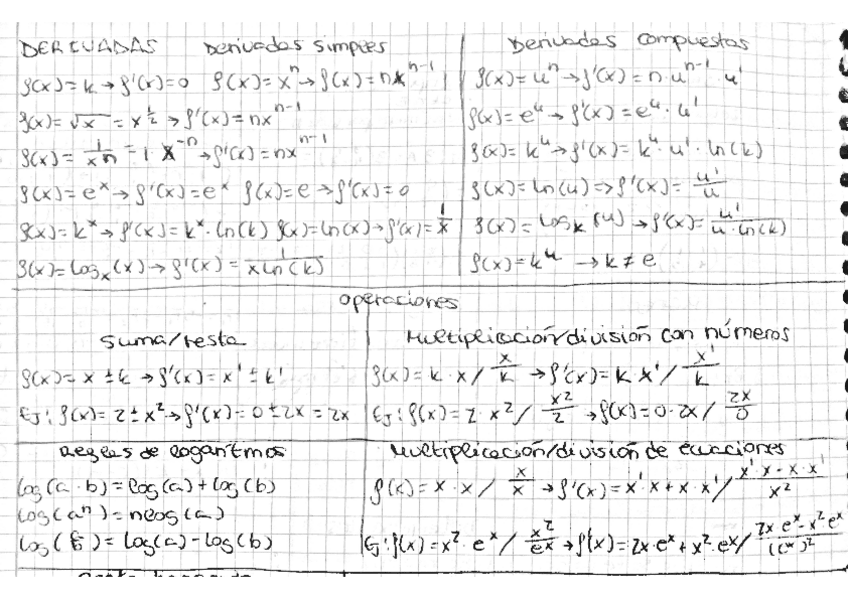 DERIVADAS Derivadas simples
f(x)=k→f'(x)=0 f(x)=xⁿ→f(x)=nxⁿ⁻¹
f(x)=√x = x^½ → f'(x)=nxⁿ⁻¹
f(x)=1/xⁿ = 1 x⁻ⁿ→f'(x)=nxⁿ⁻¹
f(x)=eˣ→f'(x)=eˣ f(x)=e→f'(x)=0
f(x)=kˣ→f'(x)=kˣ·ln(k) f(x)=ln(x)→f'(x)=1/x
f(x)=logₓ(x)→f'(x)=1/(x ln(k))
Derivadas compuestas
f(x)=uⁿ→f'(x)=n·uⁿ⁻¹·u'
f(x)=eᵘ→f'(x)=eᵘ·u'
f(x)=kᵘ→f'(x)=kᵘ·u'·ln(k)
f(x)=ln(u)=>f'(x)=u'/u
f(x)=logₖ(u)→f'(x)=u'/(u·ln(k))
f(x)=kᵘ →k≠e
operaciones
Suma/resta
f(x)=x±k→f'(x)=x'±k'
Ej: f(x)=2±x²→f'(x)=0±2x=2x
Multiplicación/división con números
f(x)=k·x / x/k →f'(x)=k·x' / x'/k
Ej: f(x)=2·x² / x²/2 →f(x)=0·2x / 2x/0
Reglas de logaritmos
log(a·b)=log(a)+log(b)
log(aⁿ)=nlog(a)
log( )=log(a)-log(b)
Multiplicación/división de ecuaciones
f(x)=x·x / x/x →f'(x)=x'·x+x·x' / (x'·x-x·x')/x²
Ej: f(x)=x²·eˣ / x²/eˣ →f(x)=2x·eˣ+x²·eˣ / (2x·eˣ-x²·eˣ)/(eˣ)²